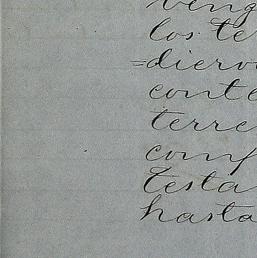 veng
los te
=diero
conte
terre
comp
Testa
hasta